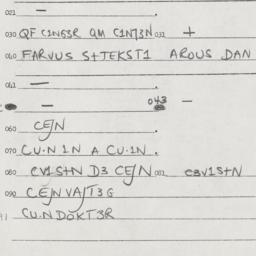 021 —
030 QF C1NG3R QM C1N73N 031 +
040 FARVUS S+TEKST1 AROUS DAN
041 —
— 043 —
060 CEJN
070 CU·N 1N A CU·1N.
080 EV1S+N D3 CEJN 081 C8V1S+N
090 CEJNVAJT3G
CU·NDOKT3R